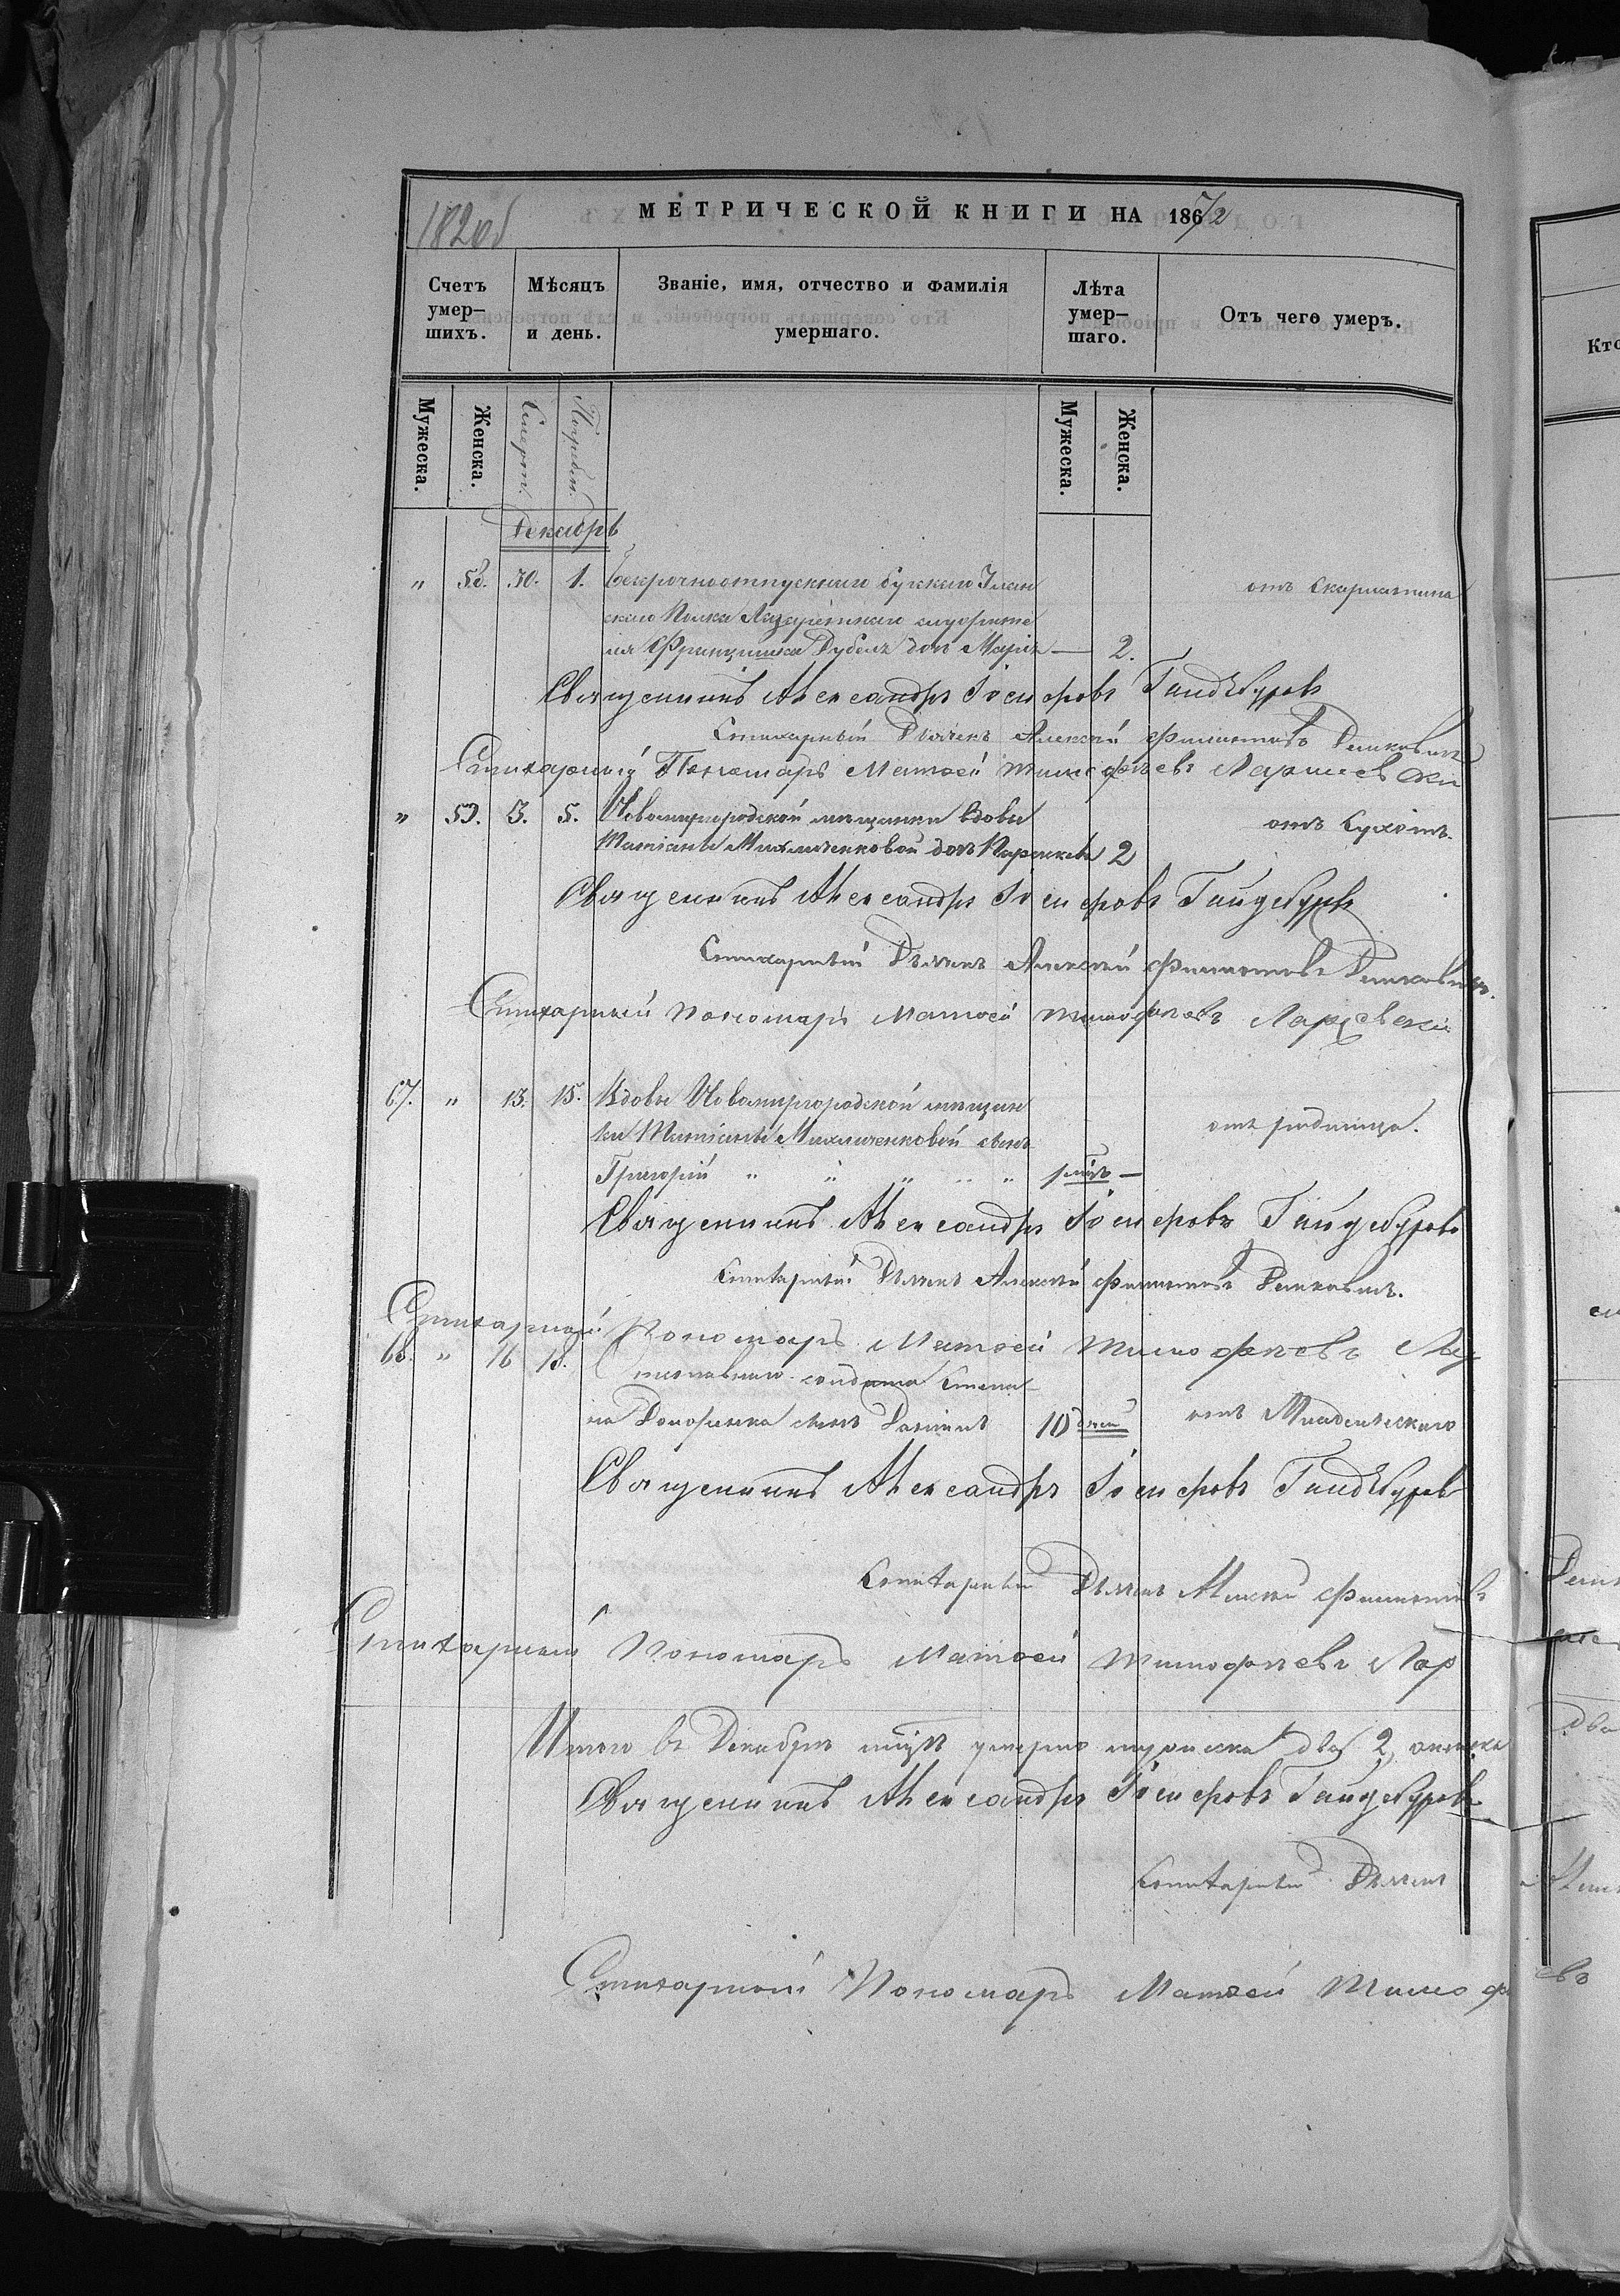 МЕТРИЧЕСКОЙ КНИГИ НА 1872
182об
Счетъ умер-шихъ.
Мѣсяцъ и день.
Званіе, имя, отчество и фамилія умершаго.
Лѣта умер-шаго.
Отъ чего умеръ.
Мужеска. Женска. Смерт. Погребен. Мужеска. Женска.
Декабрь
" 58. 30. 1. Безсрочноотпускнаго Бугскаго Улан отъ скарлатина
скаго Полка Лазаретнаго служите
ля Францишка Дубель дочь Марія — 2.
Священникъ Александръ Іосифовъ Гайдебуровъ
Стихарный Дьячекъ Алексѣй Филиповъ
Стихарный Пономарь Матвей Тимофѣевъ
" 59. 3. 5. Новомиргородской мѣщанки вдовы отъ сухотъ.
Татіаны Михличенковой дочь Параскева 2
Священникъ Александръ Іосифовъ Гайдебуровъ
Стихарный Дьячекъ Алексѣй Филиповъ
Стихарный Пономарь Матвей Тимофѣевъ
67. " 13. 15. Вдовы Новомиргородской мѣщан
ки Татіаны Михличенковой сынъ отъ родимца.
Григорій " " " " " —
Священникъ Александръ Іосифовъ Гайдебуровъ
Стихарный Дьячекъ Алексѣй Филиповъ
Стихарный Пономарь Матвей Тимофѣевъ Ла
68. " 16 18. солдата Степа
на сынъ 10 дней отъ Младенческаго
Священникъ Александръ Іосифовъ Гайдебуровъ
Стихарный Дьячекъ Алексѣй Филиповъ
Стихарный Пономарь Матвей Тимофѣевъ Лар
Итого въ Декабрѣ мцѣ умерло мужеска два 2, женска
Священникъ Александръ Іосифовъ Гайдебуровъ
Стихарный Дьячекъ
Стихарный Пономарь Матвей Тимоф
Кто
два
евъ